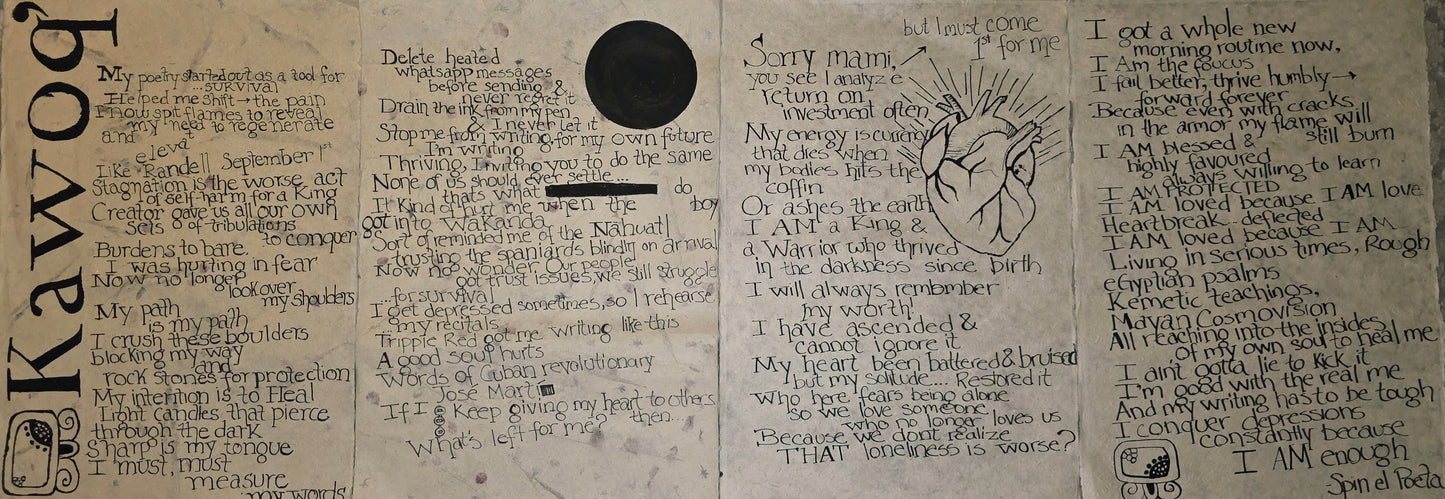 Kawoq'
My poetry started out as a tool for
...survival
Helped me shift → the pain
I now spit flames to reveal
my need to regenerate
and
eleva'
Like Randell September 1st
Stagnation is the worse act
of self-harm for a King
Creator gave us all our own
sets of tribulations
to conquer
Burdens to bare.
I was hurting in fear
Now no longer
look over
my shoulders
My path
is my path
I crush these boulders
blocking my way
and
rock stones for protection
My intention is to Heal
Light candles that pierce
through the dark
Sharp is my tongue
I must, must
measure
my words
Delete heated
whatsapp messages
before sending &
never regret it
Drain the ink from my pen
& I never let it
Stop me from writing, for my own future
I'm writing
Thriving, Inviting you to do the same
None of us should ever settle...
that's what do
It kind of hurt me when the boy
got into Wakanda
Sort of reminded me of the Nahuatl
trusting the spaniards blindly on arrival
Now no wonder Our people
got trust issues, we still struggle
...for survival
I get depressed sometimes, so I rehearse
...my recitals
Tripple Red got me writing like this
A good soup hurts
Words of Cuban revolutionary
Jose Marti
If I Keep giving my heart to others
then...
What's left for me?
but I must come
1st for me
Sorry mami,
you see I analyze
return on
investment often
My energy is currency
that dies when
my bodies hits the
coffin
Or ashes the earth
I AM a King &
a Warrior who thrived
in the darkness since birth
I will always remember
my worth!
I have ascended &
cannot ignore it
My heart been battered & bruised
but my solitude.... Restored it
Who here fears being alone
so we love someone
who no longer loves us
Because we dont realize
THAT loneliness is worse?
I got a whole new
morning routine now,
I Am the foucus
I fail better, thrive humbly →
forward forever
Because even with cracks
in the armor my flame will
still burn
I AM blessed &
highly favoured
always willing to learn
I AM PROTECTED
I AM loved because I AM love
Heartbreak.. deflected
I AM loved because I AM
Living in serious times, Rough
eGyptian psalms
Kemetic teachings,
Mayan Cosmovision
All reaching into the insides
of my own soul to heal me
I aint gotta lie to kick it
I'm good with the real me
And my writing has to be tough
I conquer depressions
constantly because
I AM enough
-Spin el Poeta